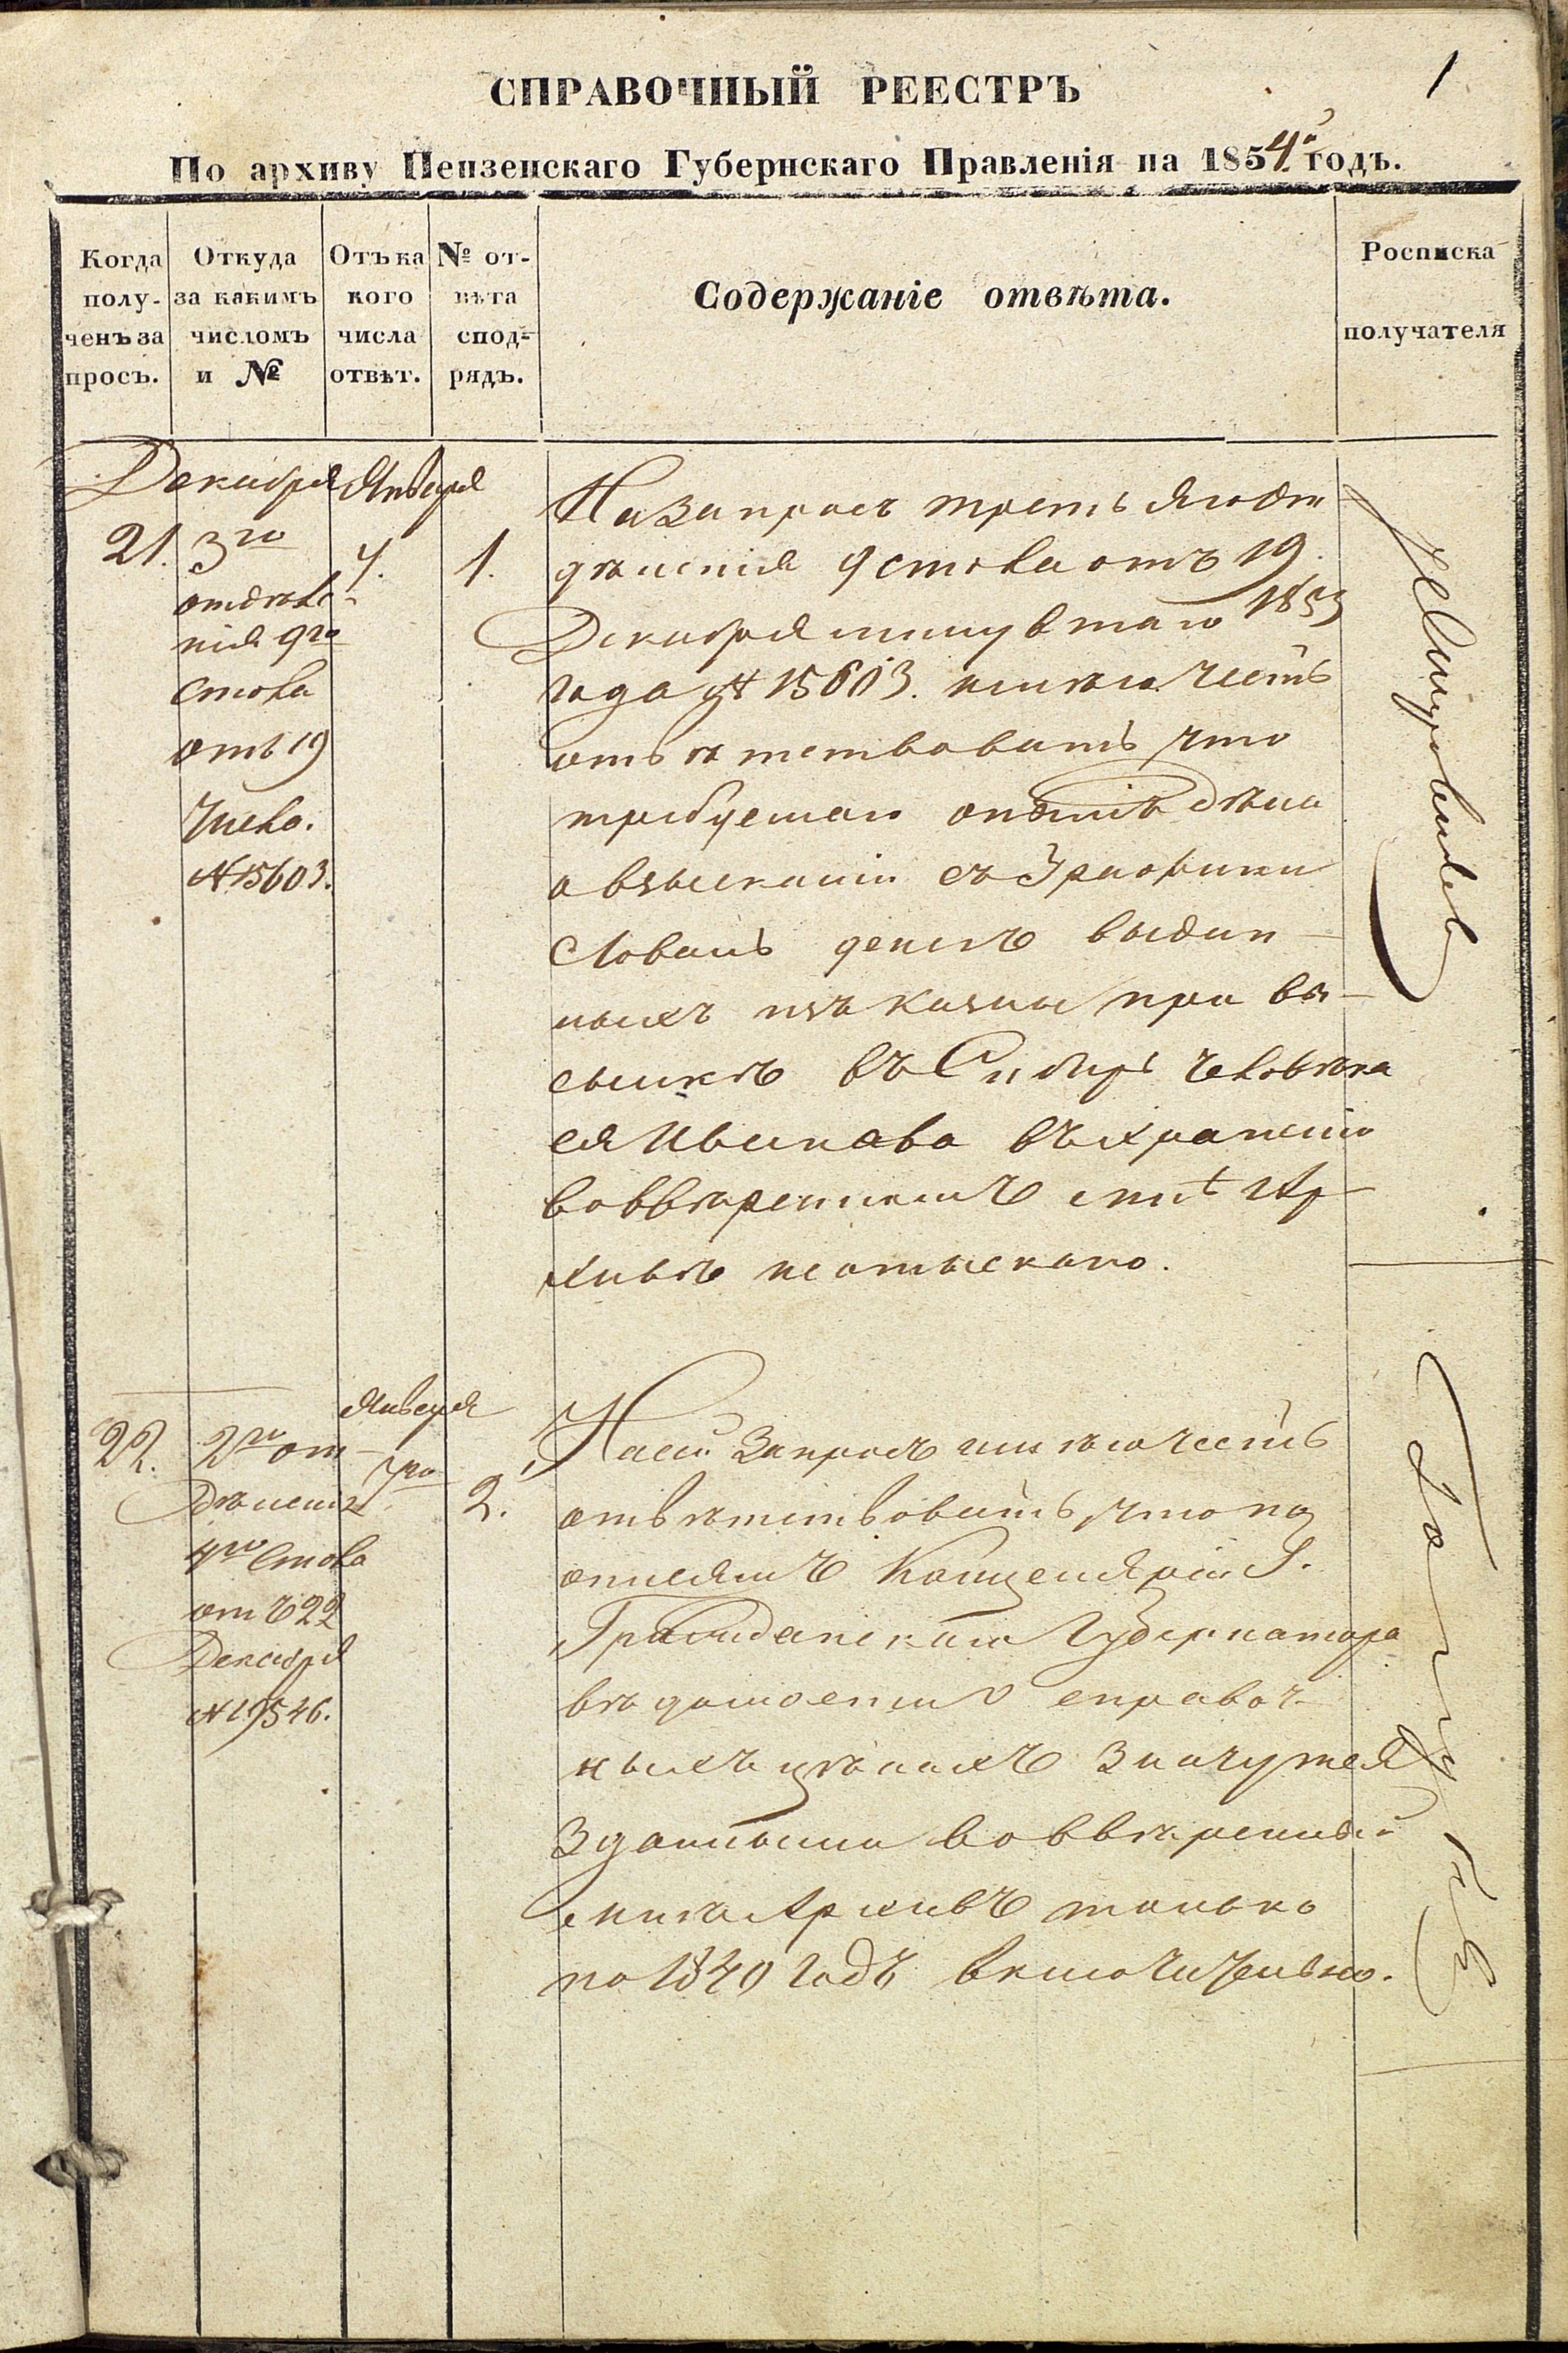 1
СПРАВОЧНЫЙ РЕЕСТРЪ
По архиву Пензенскаго Губернскаго Правленія на 1854й годъ.
Когда полу- ченъ за просъ.
Откуда за какимъ числомъ и №
Отъ ка кого числа отвѣт.
№ от- вѣта спод- рядъ.
Содержаніе отвѣта.
Росписка получателя
Декабря
21.
3го
отдѣле-
нія 9го
стола
отъ 19
Числа.
№ 15603.
Января
4.
1.
На запросъ третьяго от
дѣленія 9 стола отъ 19
Декабря минувшаго 1853
года № 15603. имѣю честь
отвѣтствовать что
требуемаго дѣла
о взысканіи съ
денегъ выдан-
ныхъ изъ казны при вы-
сылкѣ въ Сибирь человѣка
ея Иванова въ храненіи
во ввѣренномъ мнѣ Ар-
хивѣ неотыскано.
22.
2го от-
дѣленія
4го Стола
отъ 22
Декабря
№ 19546.
Января
7го
2.
На сей Запросъ имѣю честь
отвѣтствовать, что по
описямъ Канцеляріи Г.
Гражданскаго Губернатора
вѣдомости о справоч-
ныхъ цѣнахъ Значутся
Зданными во ввѣренный
мнѣ Архивъ только
по 1840 годъ включительно.